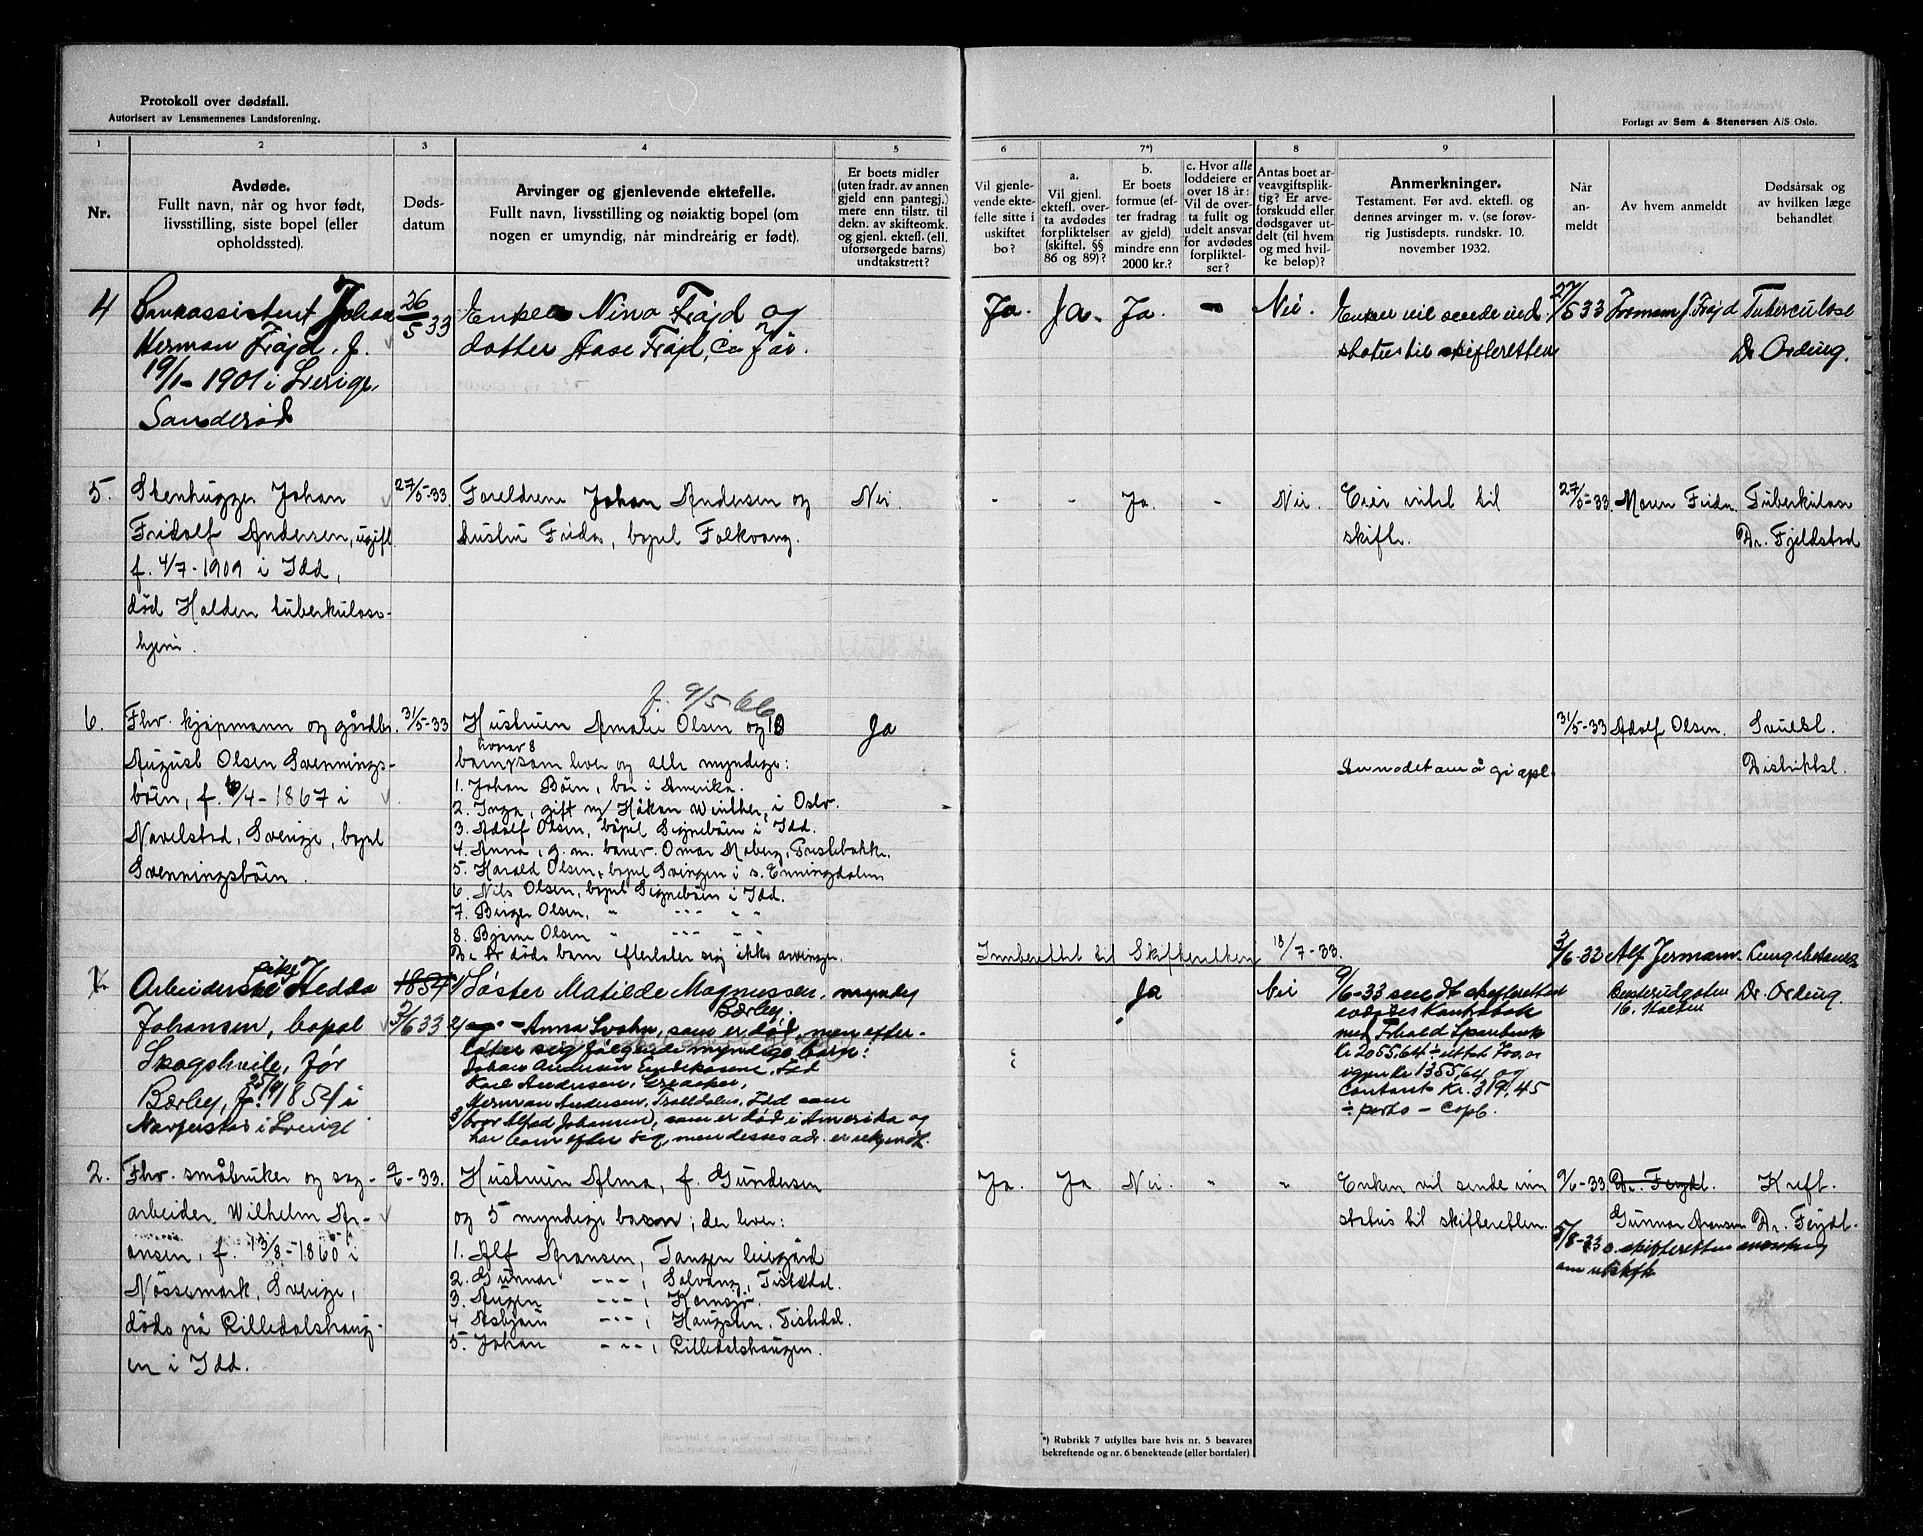 Protokoll over dødsfall.
Autorisert av Lensmennenes Landsforening.
Forlagt av Sem & Stenersen A/S Oslo.
1
2
3
4
5
6
7*)
8
9
Nr.
Avdøde.
Fullt navn, når og hvor født,
livsstilling, siste bopel (eller
opholdssted).
Døds-
datum
Arvinger og gjenlevende ektefelle.
Fullt navn, livsstilling og nøiaktig bopel (om
nogen er umyndig, når mindreårig er født).
Er boets midler
(uten fradr. av annen
gjeld enn pantegj.)
mere enn tilstr. til
dekn. av skifteomk.
og gjenl. ektefl. (ell.
uforsørgede barns)
undtakstrett?
Vil gjenle-
vende ekte-
felle sitte i
uskiftet
bo?
a.
Vil gjenl.
ektefl. over-
ta avdødes
forpliktelser
(skiftel. §§
86 og 89)?
b.
Er boets
formue (ef-
ter fradrag
av gjeld)
mindre enn
2000 kr.?
c. Hvor alle
loddeiere er
over 18 år:
Vil de over-
ta fullt og
udelt ansvar
for avdødes
forpliktel-
ser?
Antas boet ar-
veavgiftsplik-
tig? Er arve-
forskudd eller
dødsgaver ut-
delt (til hvem
og med hvil-
ke beløp)?
Anmerkninger.
Testament. Før avd. ektefl. og
dennes arvinger m. v. (se forøv-
rig Justisdepts. rundskr. 10.
november 1932.
Når
an-
meldt
Av hvem anmeldt
Dødsårsak og
av hvilken læge
behandlet
4
Bankassistent Johan
Herman Fröjd. f.
19/1-1901 i Sverige,
Sanderød
26/5 33
Enken Nina Fröjd og
datter Aase Fröjd, ca 7 år.
Ja. Ja. Ja. - Nei.
Enken vil sende ind
status til skifteretten
27/5 33
Tuberculose
Dr Ording.
5.
Stenhugger Johan
Fridolf Andersen, ugift
f. 4/7-1909 i Idd,
død Halden tuberkulose-
hjem.
27/5-33.
Foreldrene Johan Andersen og
hustru Frida, bopel Folkvang.
Nei.
- - Ja. - Nei.
Eier intet til
skifte.
27/5-33.
Moren Frida
Tuberkulose
Dr. Fjeldstad
6.
Fhv. kjøpmann og gårdbr.
August Olsen Svennings-
böen, f. 6/4-1867 i
Navelstad, Sverige, bopel
Svenningsböen.
31/5-33
f. 9/5 66
Hustruen Amalie Olsen og 10
hvorav 8
barn som lever og alle myndige:
1. Johan Böen, bor i Amerika.
2. Inga, gift m/ Håkon Winther, i Oslo.
3. Adolf Olsen, bopel Signeböen i Idd.
4. Anna, g. m. banev. Omar Moberg, Tistebakke.
5. Harald Olsen, bopel Svingen i s. Enningdalen
6. Nils Olsen, bopel Signeböen i Idd.
7. Birger Olsen, " --- " "
8. Bjarne Olsen " --- " "
De to døde barn efterlater sig ikke arvinger.
Ja
Anmodet om å gi opl.
31/5-33
Adolf Olsen.
Svulst.
Distriktsl.
Innberettet til Skifteretten 18/7-33.
1.
Arbeiderske pike Hedda
Johansen, bopel
Skogshvile, før
Bærby, f. 25/9 1854 i
Navferstad i Sverige
1854
3/6 33
1) Søster Matilde Magnussen, myndig
Bærby.
2) - Anna Svahn, som er død, men efter-
later sig følgende myndige barn:
Karl Andersen, Greaaker,
Herman Andersen, Trolldalen, Idd som
3) bror Alfred Johansen, som er død i Amerika og
har barn efter seg, men desses adr. er ukjendt.
Ja
Nei
9/6-33 sendt skifteretten
avdødes Kontrabok
med Fr.hald Sparebank
Kr 2055.64 ÷ uttat 700. or
igjen kr 1355.64 og
Contant Kr. 319.45
÷ porto - Copb.
3/6-33
Alf Jermann
Lungebetændelse
Dr. Ording.
2.
Fhv. småbruker og sag-
arbeider Wilhelm Ar-
onsen, f. 13/8-1860 i
Nössemark, Sverige,
døds på Lilledalshaug-
en i Idd.
Hustruen Alma, f. Gundersen
og 5 myndige barn, der lever:
1. Alf Aronsen, Tangen livgård
2. Gunnar --- , Solvang, Tistedal.
3. Augen --- , Kornsjø.
4 Asbjørn --- , Haugsten, Tistedal.
5. Johan --- , Lilledalshaugen.
Ja. Ja. Nei. " "
Enken vil sende inn
status til skifteretten.
9/6-33.
Gunnar Aronsen
Kreft.
Dr. Feydt.
5/8-33 o. skifteretten
om utskift
*) Rubrikk 7 utfylles bare hvis nr. 5 besvares
bekreftende og nr. 6 benektende (eller bortfaler)